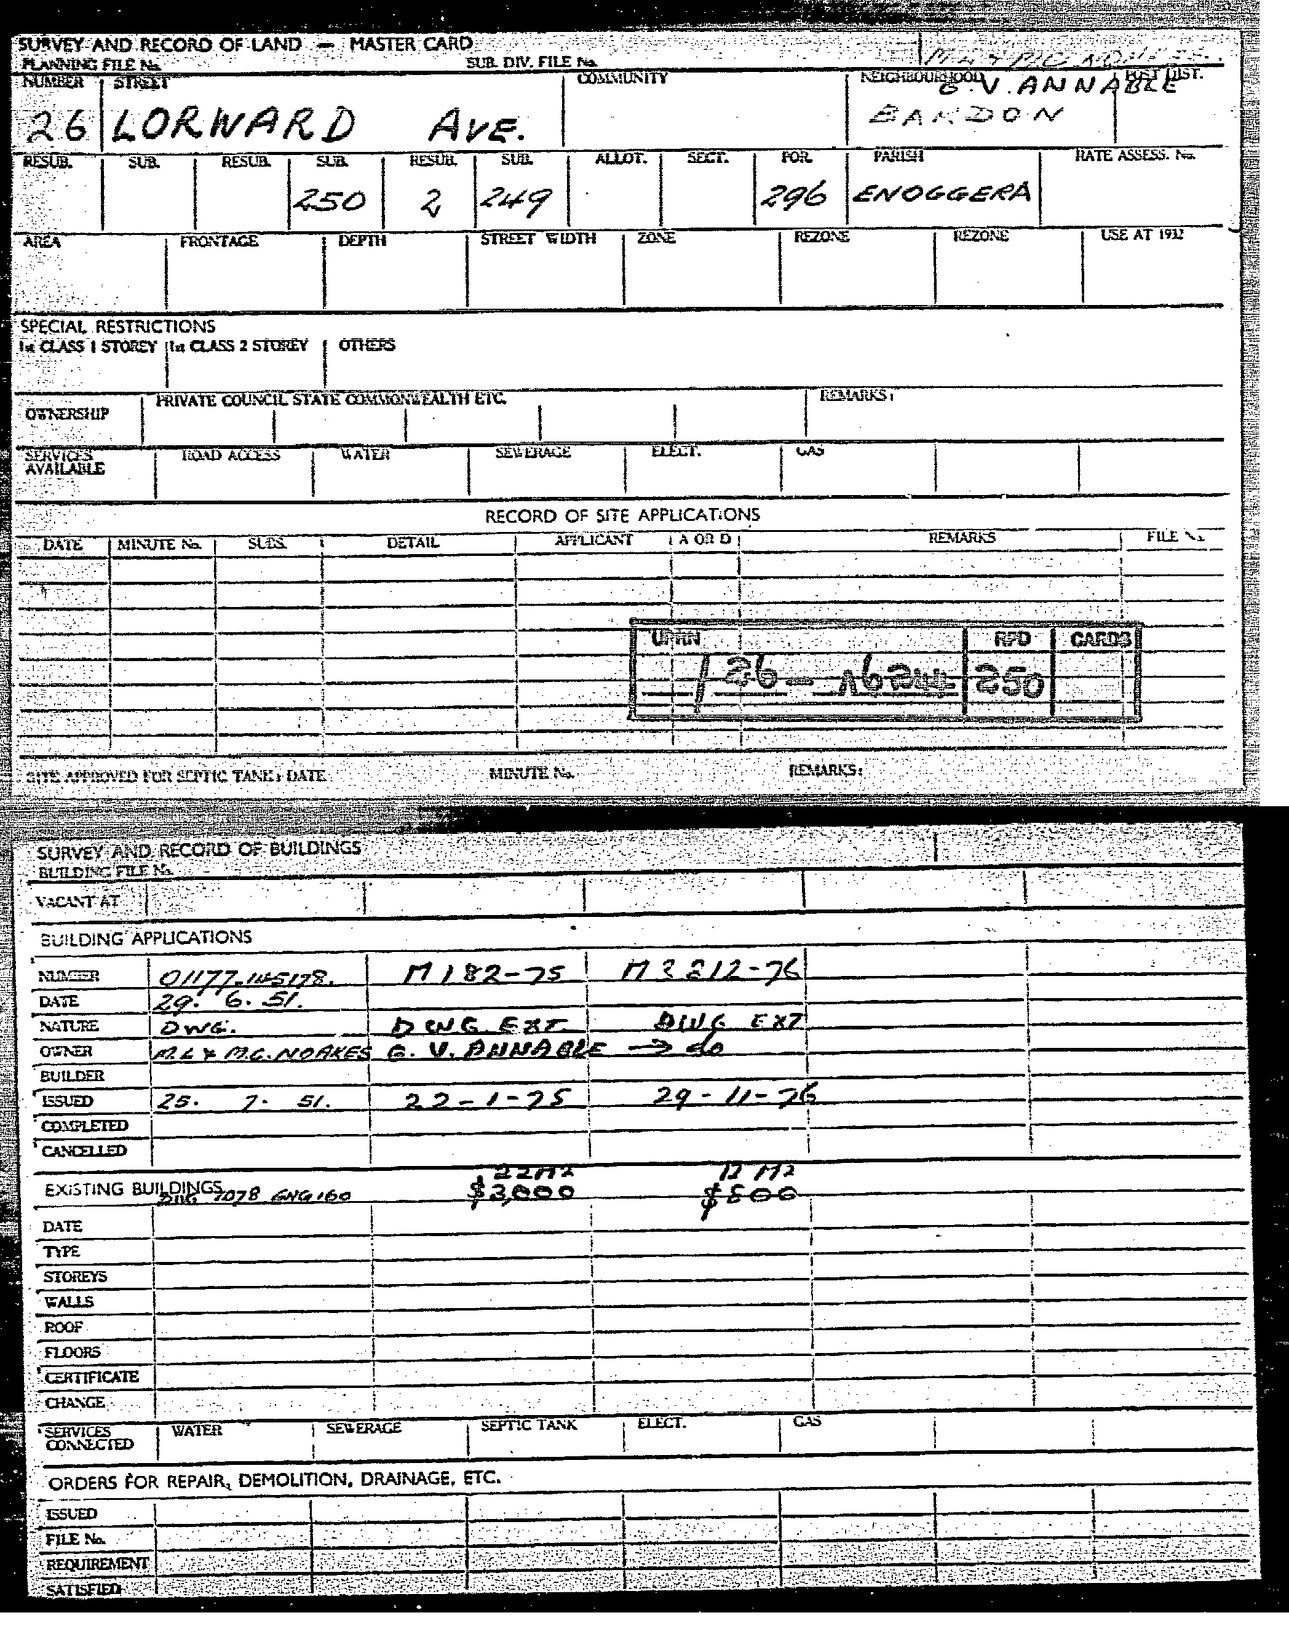 SURVEY AND RECORD OF LAND — MASTER CARD
PLANNING FILE No. SUB. DIV. FILE No.
NUMBER STREET COMMUNITY NEIGHBOURHOOD POST DIST.
G. V. ANNABLE
26 LORWARD AVE. BARDON
RESUB. SUB. RESUB. SUB. RESUB. SUB. ALLOT. SECT. POR. PARISH RATE ASSESS. No.
250 2 249 296 ENOGGERA
AREA FRONTAGE DEPTH STREET WIDTH ZONE REZONE REZONE USE AT 1932
SPECIAL RESTRICTIONS
1st CLASS 1 STOREY 1st CLASS 2 STOREY OTHERS
OWNERSHIP PRIVATE COUNCIL STATE COMMONWEALTH ETC. REMARKS:
SERVICES AVAILABLE ROAD ACCESS WATER SEWERAGE ELECT. GAS
RECORD OF SITE APPLICATIONS
DATE MINUTE No. SUBS. DETAIL APPLICANT A OR D REMARKS FILE No.
UPRN RPD CARDS
250
SITE APPROVED FOR SEPTIC TANK: DATE MINUTE No. REMARKS:
SURVEY AND RECORD OF BUILDINGS
BUILDING FILE No.
VACANT AT
BUILDING APPLICATIONS
NUMBER 01177.145178. M182-75 M3212-76
DATE 29. 6. 51.
NATURE DWG. DWG EXT. DWG EXT
OWNER M.L & M.C. NOAKES G. V. ANNABLE → do
BUILDER
ISSUED 25. 7. 51. 22-1-75 29-11-76
COMPLETED
CANCELLED
22M2 12 M2
EXISTING BUILDINGS 7078 ENG 160 $3,000 $800
DATE
TYPE
STOREYS
WALLS
ROOF
FLOORS
CERTIFICATE
CHANGE
SERVICES CONNECTED WATER SEWERAGE SEPTIC TANK ELECT. GAS
ORDERS FOR REPAIR, DEMOLITION, DRAINAGE, ETC.
ISSUED
FILE No.
REQUIREMENT
SATISFIED